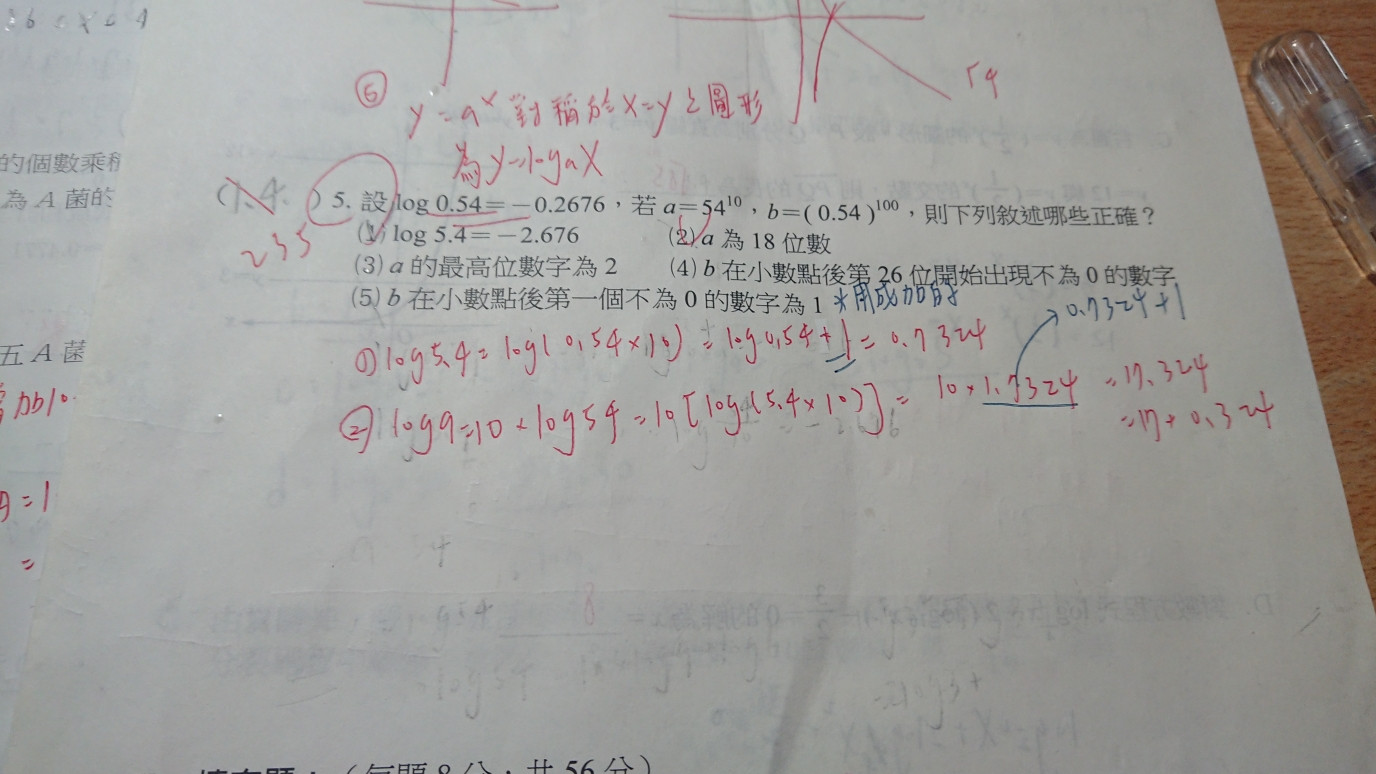 ⑥ y=a^x 對稱於x=y之圖形
為y=logaX
的個數乘積
為 A 菌的
(1.4. ) 5. 設 log 0.54=-0.2676，若 a=54^10，b=(0.54)^100，則下列敘述哪些正確？
235
(1) log 5.4=-2.676 (2) a 為 18 位數
(3) a 的最高位數字為 2 (4) b 在小數點後第 26 位開始出現不為 0 的數字
(5) b 在小數點後第一個不為 0 的數字為 1 *用成加的
0.7324+1
五 A 菌
(1) log5.4=log(0.54×10)=log0.54+1=0.7324
② loga=10×log54=10[log(5.4×10)]=10×1.7324=17.324
=17+0.324
=1
=
填充題：（每題 8 分，共 56 分）